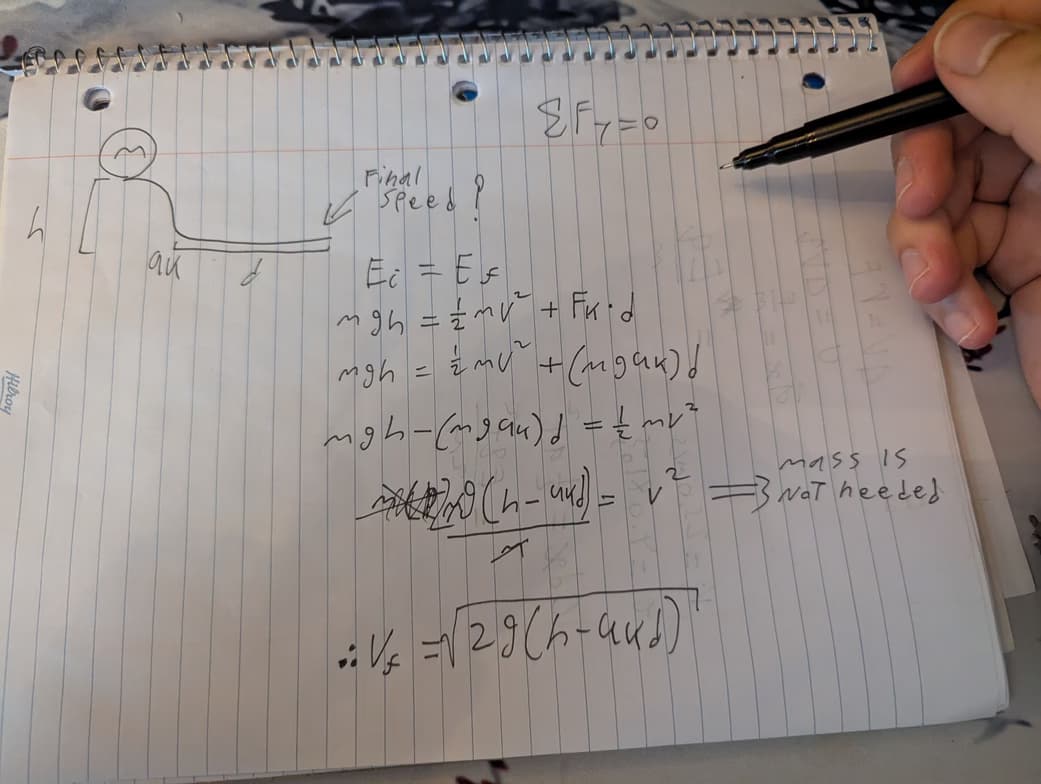 ΣFy=0
m
h
Final
speed?
uk
d
Ei = Ef
mgh = ½mv² + Fk·d
mgh = ½mv² + (mguk)d
mgh-(mguk)d = ½mv²
2mg(h-ukd) = v² => mass is
NOT needed
m
∴ Vf = √2g(h-ukd)
Hilroy